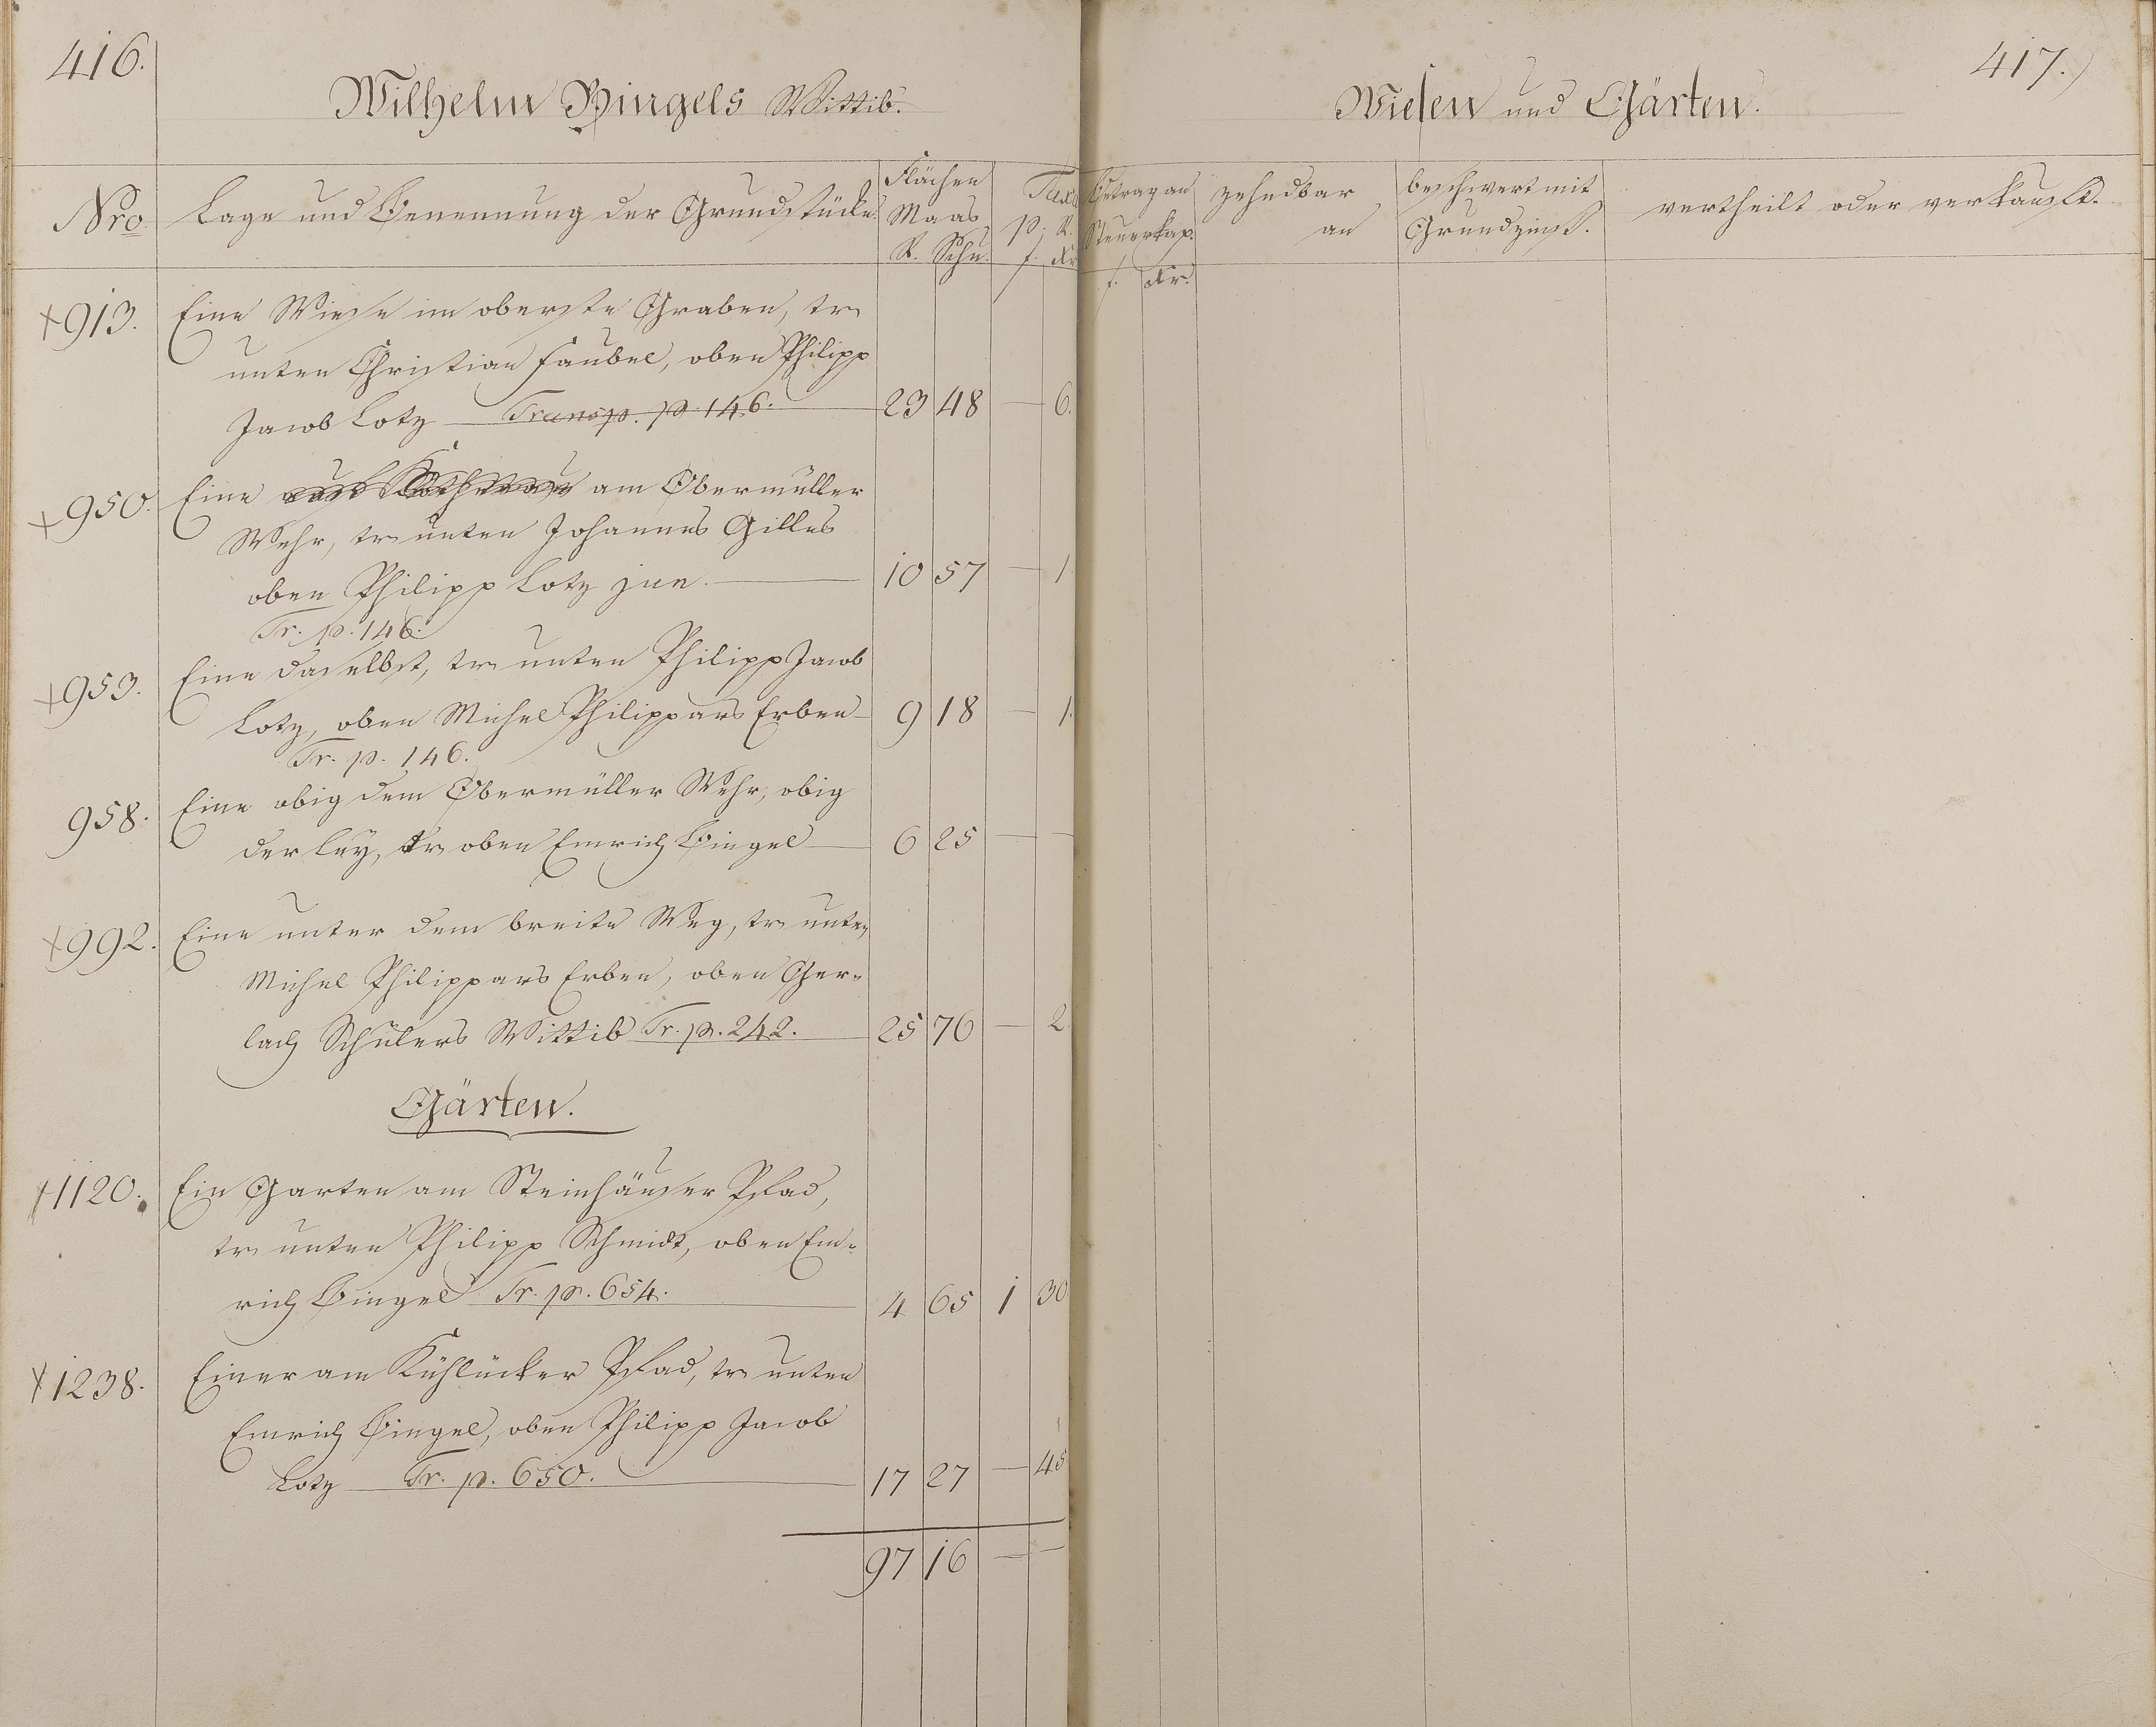 416.
Wilhelm Bingels Wittib.
Nro
Lage und Benennung der Grundstücke.
Flächen
Maas
R. Schu.
Taxa
p. R.
f. Xr
+913. Eine Wiese im oberste Graben, tr
unten Christian Faubel, oben Philipp
Jacob Lotz Transp. p. 146. 23 48 — 6.
+950. Eine am Obermüller
Wehr, tr unten Johannes Gilles
oben Philipp Lotz jun. 10 57 — 1
Tr. p. 146.
+953. Eine daselbst, tr unten Philipp Jacob
Lotz, oben Michel Philippars Erben 9 18 — 1.
Tr. p. 146.
958. Eine obig dem Obermüller Wehr, obig
der Ley, tr oben Emrich Bingel 6 25 — —
+992. Eine unter dem breite Weg, tr unten
Michel Philippars Erben, oben Ger-
lach Schülers Wittib Tr. p. 242. 25 76 — 2
Gärten.
+1120. Ein Garten am Steinhäuser Pfad,
tr unten Philipp Schmidt, oben Em-
rich Bingel Tr. p. 654. 4 65 1 30
+1238. Einer am Kühlücker Pfad, tr unten
Emrich Bingel, oben Philipp Jacob
Lotz Tr. p. 650. 17 27 — 45
97 16 — —
417.
Wiesen und Gärten.
Betrag an
Steuerkap.
f. Xr.
zehndbar
an
beschwert mit
Grundzinß.
vertheilt oder verkauft.